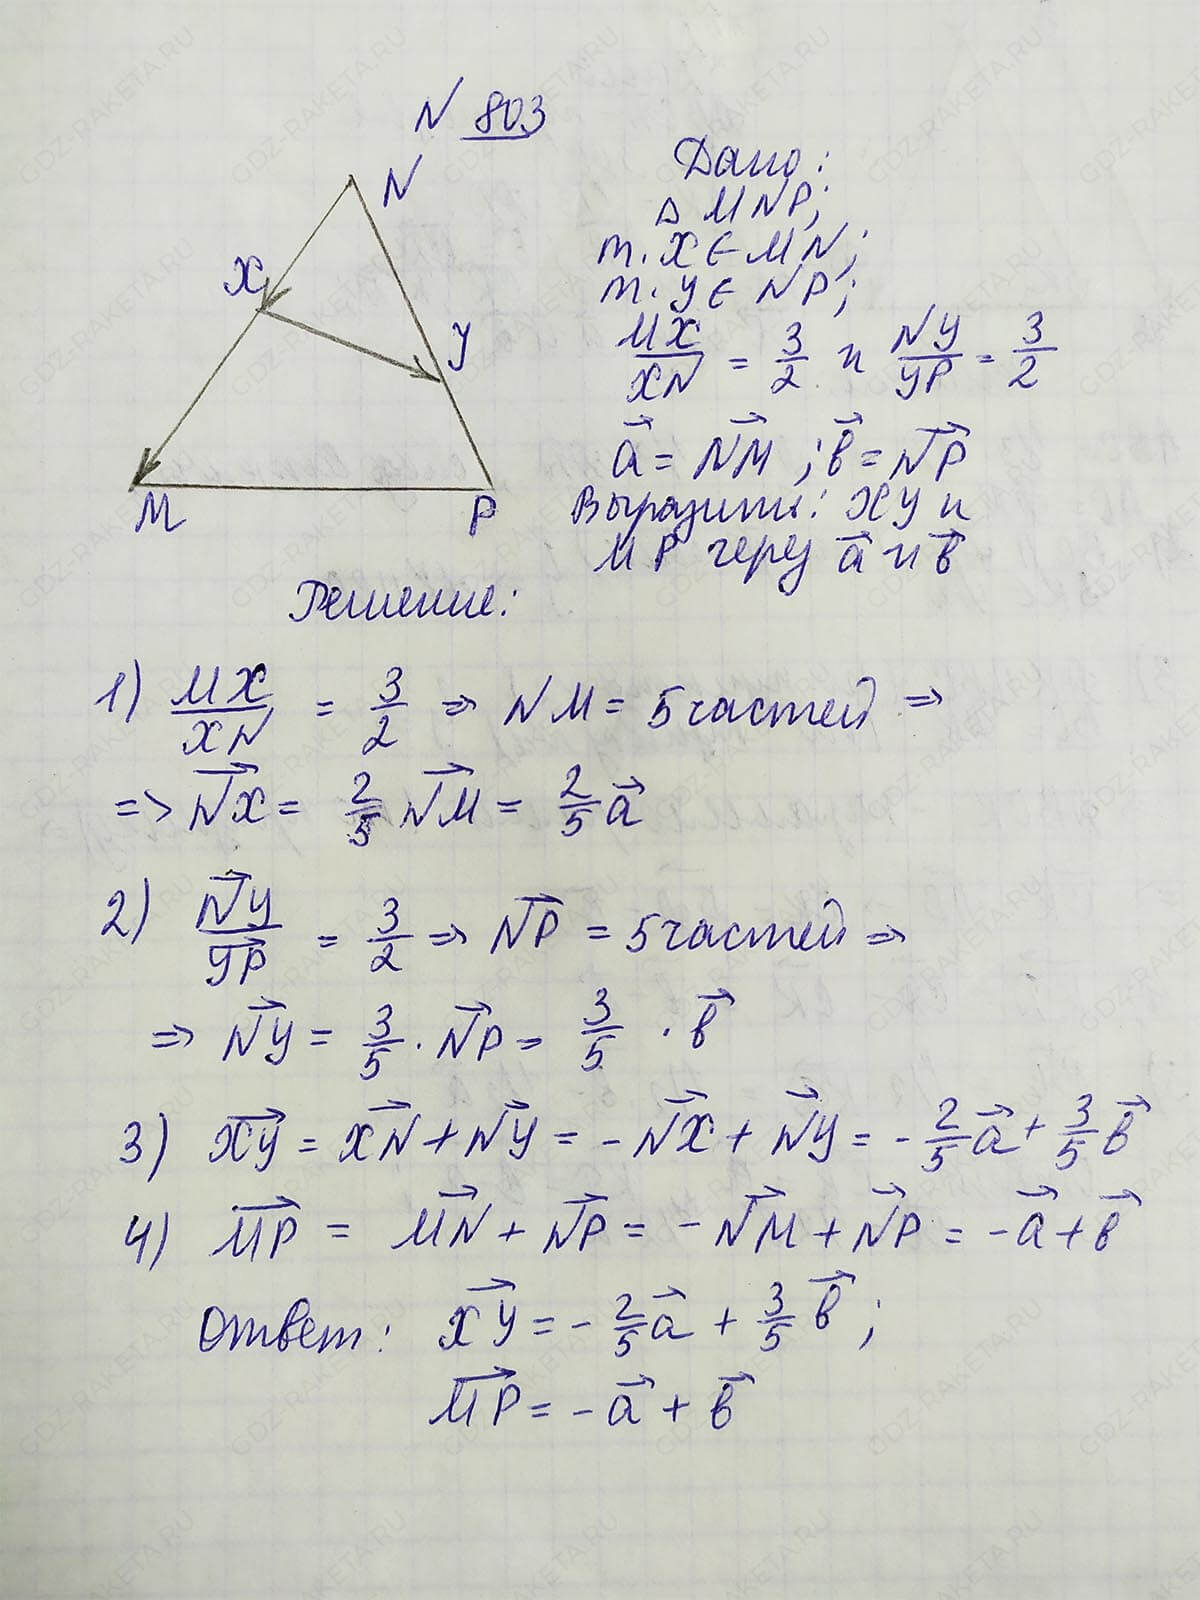 N 803
N
X
У
M
P
Дано:
△ MNP;
т. X ∈ MN;
т. У ∈ NP;
MX/XN = 3/2 и NУ/УP = 3/2
a⃗ = NM⃗ ; b⃗ = NP⃗
Выразить: XУ и
MP через a⃗ и b⃗
Решение:
1) MX/XN = 3/2 ⇒ NM = 5 частей ⇒
=> NX⃗ = 2/5 NM⃗ = 2/5 a⃗
2) NУ⃗/УP⃗ = 3/2 ⇒ NP⃗ = 5 частей ⇒
⇒ NУ⃗ = 3/5 · NP⃗ = 3/5 · b⃗
3) XУ⃗ = XN⃗ + NУ⃗ = - NX⃗ + NУ⃗ = - 2/5 a⃗ + 3/5 b⃗
4) MP⃗ = MN⃗ + NP⃗ = - NM⃗ + NP⃗ = - a⃗ + b⃗
Ответ: XУ⃗ = - 2/5 a⃗ + 3/5 b⃗ ;
MP⃗ = - a⃗ + b⃗
GDZ-RAKETA.RU